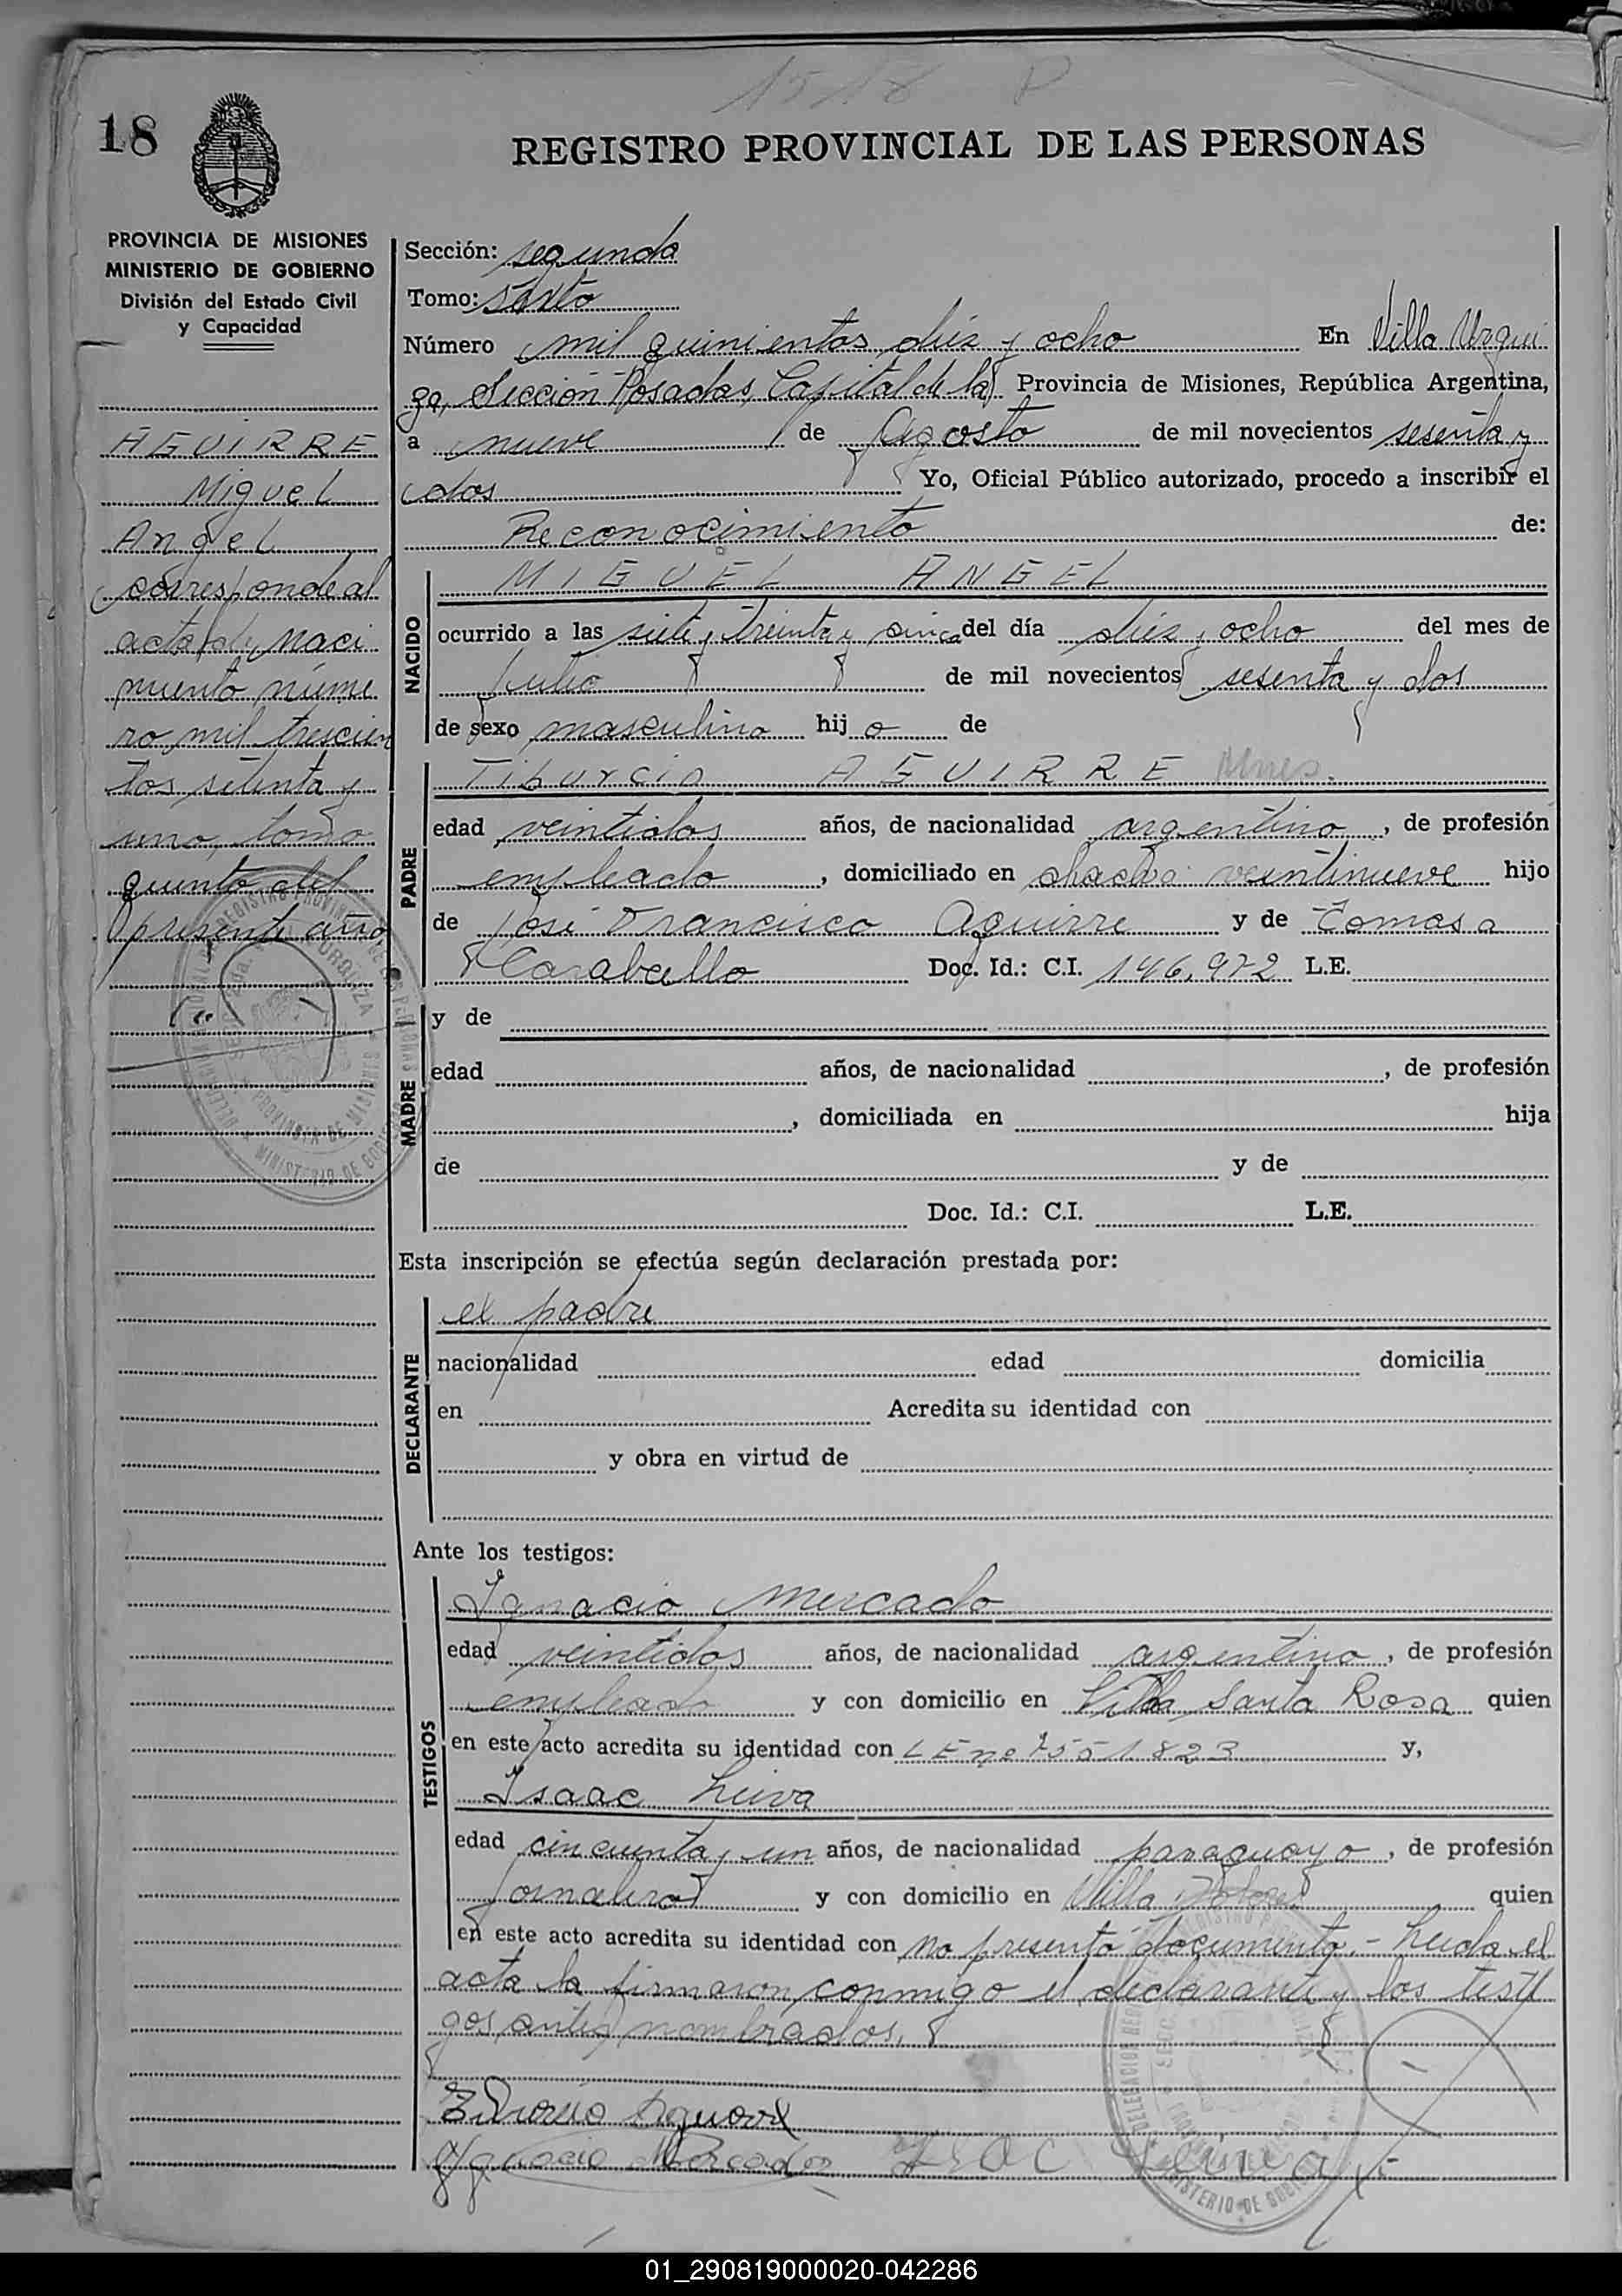 1518 P
18
REGISTRO PROVINCIAL DE LAS PERSONAS
PROVINCIA DE MISIONES
MINISTERIO DE GOBIERNO
División del Estado Civil
y Capacidad
AGUIRRE
Miguel
Angel
corresponde al
acta de naci
miento núme
ro mil trescien
tos setenta y
uno, tomo
quinto del
presente año
Sección: segunda
Tomo: sexto
Número mil quinientos diez y ocho En Villa Urqui
za, Sección Posadas, Capital de la Provincia de Misiones, República Argentina,
a nueve de Agosto de mil novecientos sesenta y
dos Yo, Oficial Público autorizado, procedo a inscribir el
Reconocimiento de:
NACIDO
MIGUEL ANGEL
ocurrido a las siete y treinta y cinco del día diez y ocho del mes de
Julio de mil novecientos sesenta y dos
de sexo masculino hijo de
PADRE
Tiburcio AGUIRRE
edad veintidos años, de nacionalidad argentino, de profesión
empleado, domiciliado en chacra veintinueve hijo
de José Francisco Aguirre y de Tomasa
Caraballo Doc. Id.: C.I. 146.972 L.E.
MADRE
y de
edad años, de nacionalidad , de profesión
, domiciliada en hija
de y de
Doc. Id.: C.I. L.E.
Esta inscripción se efectúa según declaración prestada por:
DECLARANTE
el padre
nacionalidad edad domicilia
en Acredita su identidad con
y obra en virtud de
Ante los testigos:
TESTIGOS
Ignacio Mercado
edad veintidos años, de nacionalidad argentino, de profesión
empleado y con domicilio en Villa Santa Rosa quien
en este acto acredita su identidad con LE no 7551823 y,
Isaac Leiva
edad cincuenta y un años, de nacionalidad paraguayo, de profesión
jornalero y con domicilio en Villa quien
en este acto acredita su identidad con no presentó documento.- Leida el
acta la firmaron conmigo el declarante y los testi
gos antes nombrados.
Ignacio Mercado Isac Leiva
01_290819000020-042286